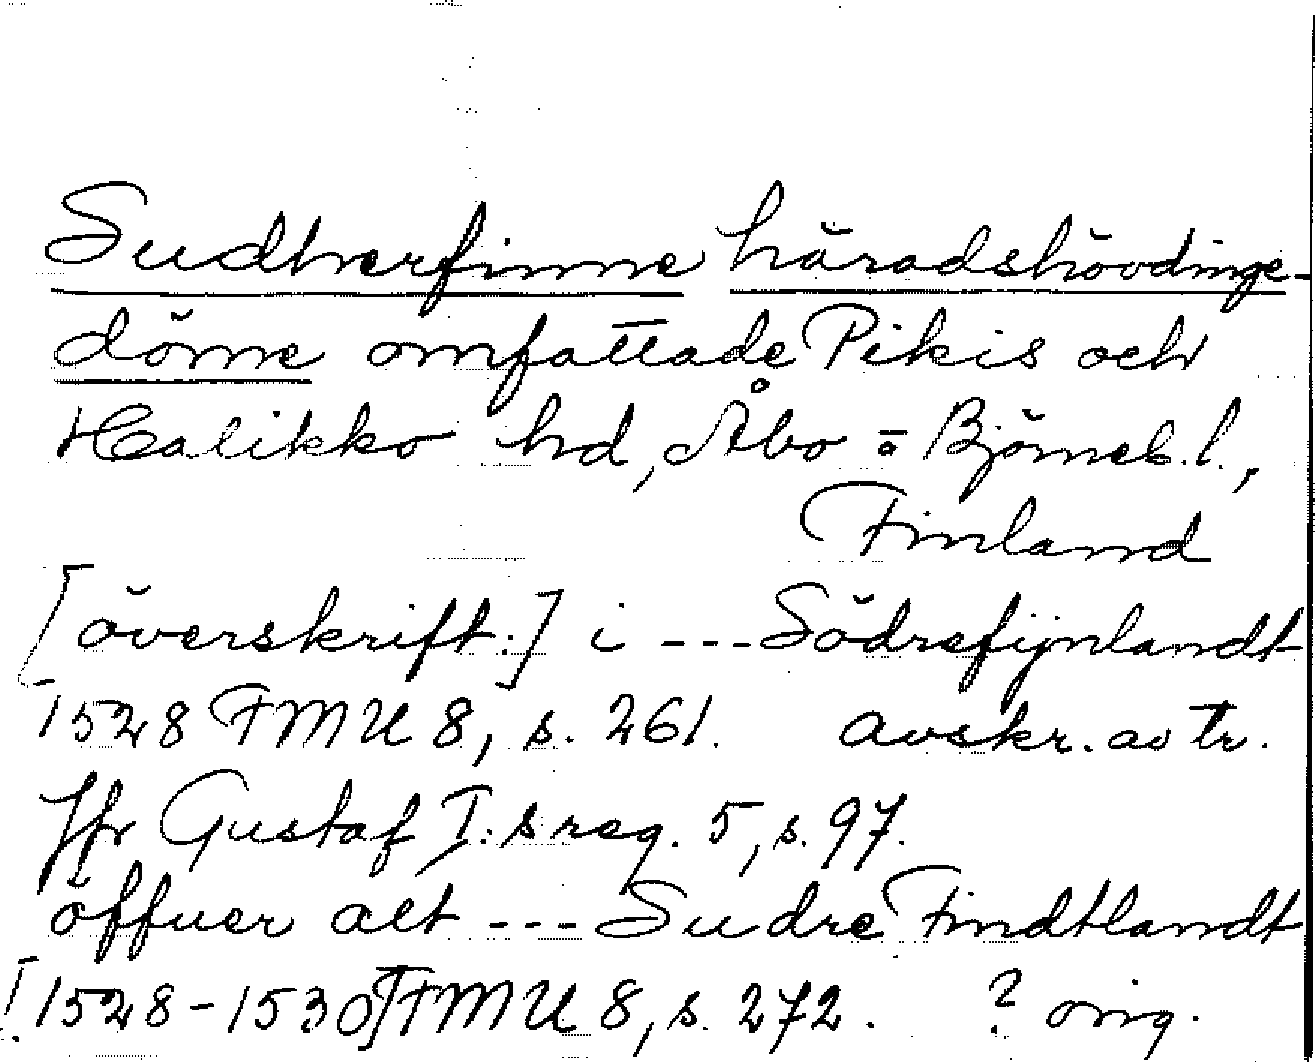 Sudherfinne häradshövdinge-
döme omfattade Pikis och
Halikko hd, Åbo o Björneb. l.,
Finland
[överskift:] i --- Södrefijnlandt
1528 FMU 8, s. 261. avskr. av tr.
Jfr Gustaf I:s reg. 5, s. 97.
öffuer alt --- Sudre Findtlandt
[1528-1530] FMU 8, s. 272. ? orig.